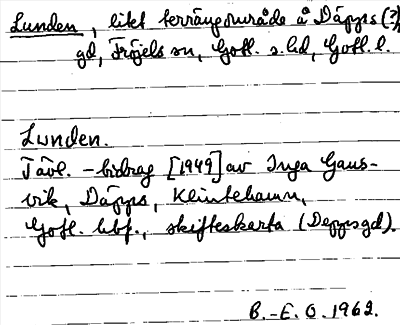 Lunden, litet terrängområde å Däpps (?)
gd, Fröjels sn, Gotl. s. hd, Gotl. l.
Lunden.
Tävl.-bidrag [1949] av Inga Gans-
vik, Däpps, Klintehamn,
Gotl. hbf., skifteskarta (Deppsgd).
B.-E. O. 1962.